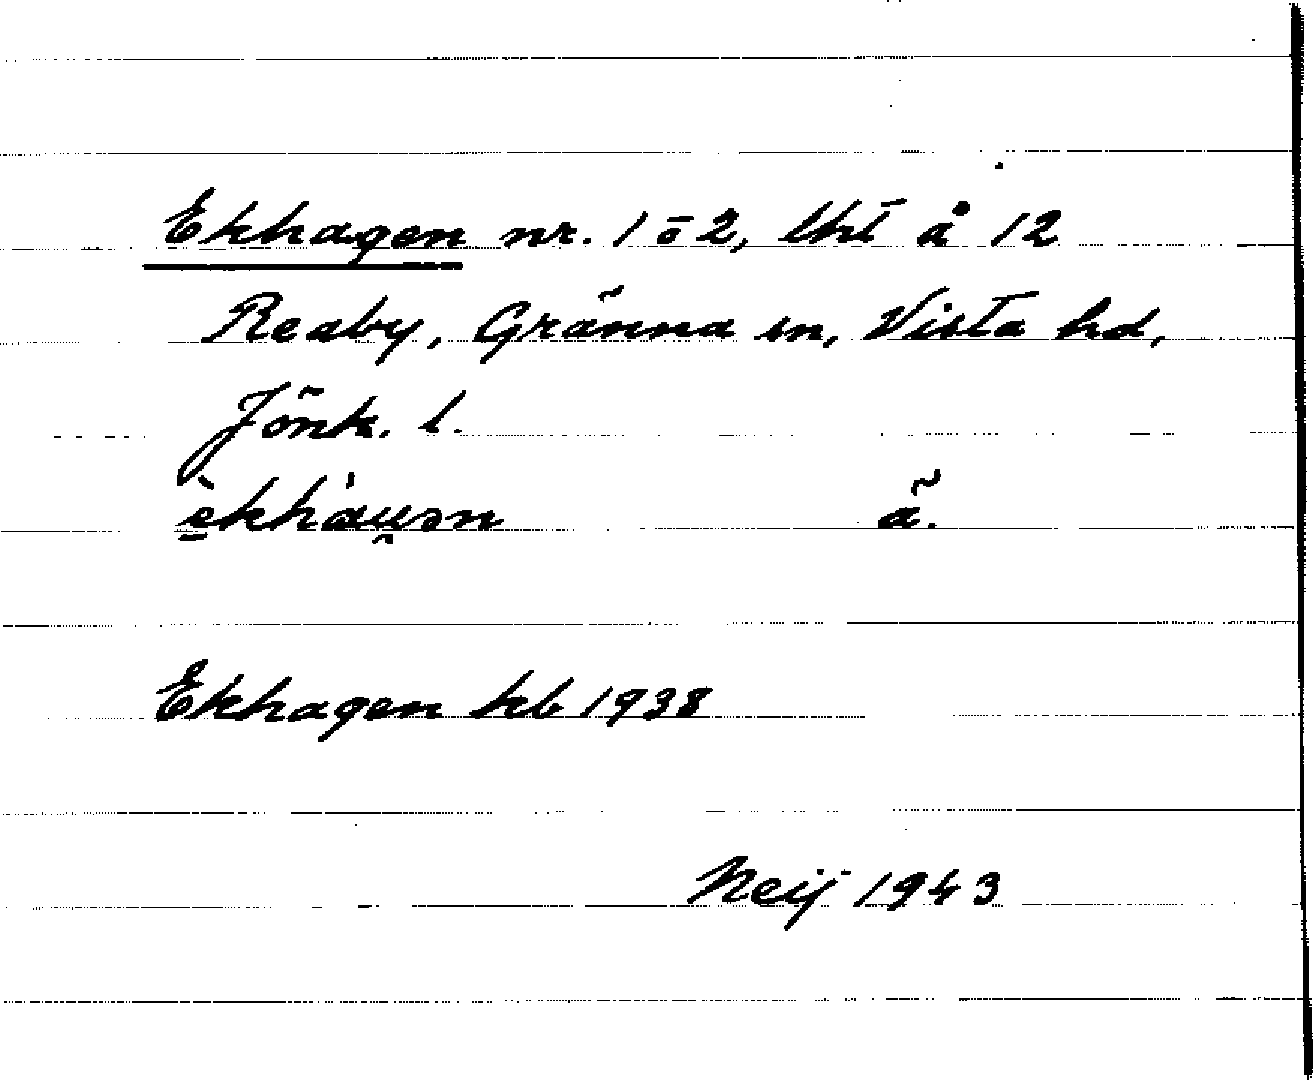 Ekhagen nr. 1 o 2, lht å 12
Reaby, Gränna sn, Vista hd,
Jönk. l.
è̠khàu̯ən ã.
Ekhagen kb 1938
Neij 1943